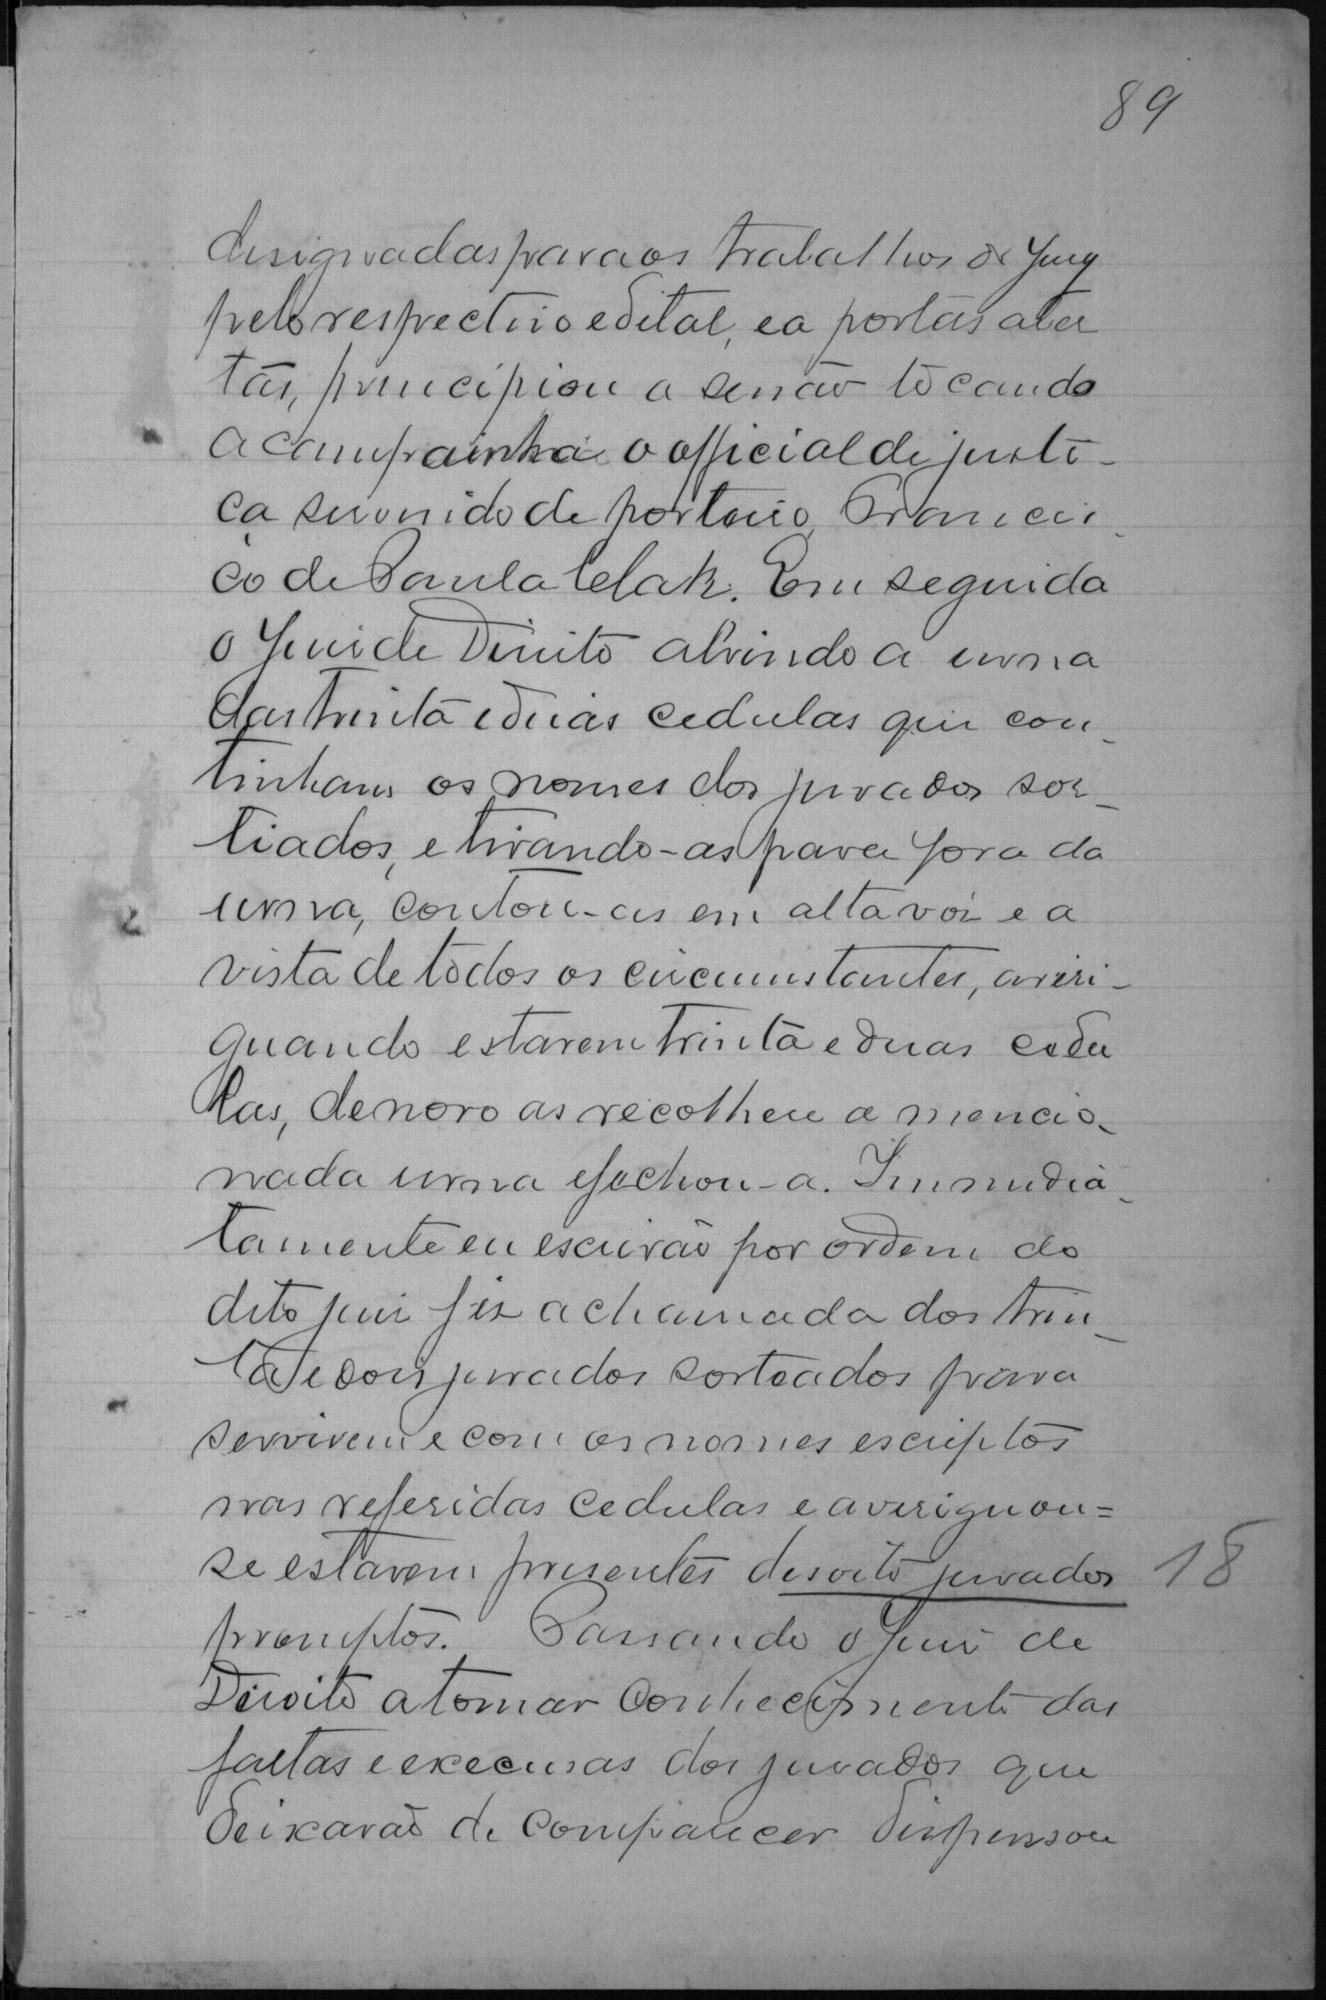 89
designadas para os trabalhos do Jury
pelo respectivo edital, e a portas aber
tas, principiou a sessão tocando
a campainha o official de justi-
ça servindo de porteiro, Francis-
co de Paula Clak. Em seguida
o Juiz de Direito abrindo a urna
das trinta e duas cedulas que con-
tinham os nomes dos jurados sor-
tiados, e tirando-as para fora da
urna, contou-as em alta voz e a
vista de todos os circumstantes, averi-
guando estarem trinta e duas cedu
las, de novo as recolheu a mencio-
nada urna e fechou-a. Immedia-
tamente eu escrivão por ordem do
dito juiz fiz a chamada dos trin-
ta e dois jurados sorteados para
servirem e com os nomes escriptos
nas referidas cedulas e averiguou=
se estarem presentes desoito jurados 18
promptos. Passando o Juiz de
Direito a tomar conhecimento das
faltas e excusas dos jurados que
deixarão de comparecer dispensou